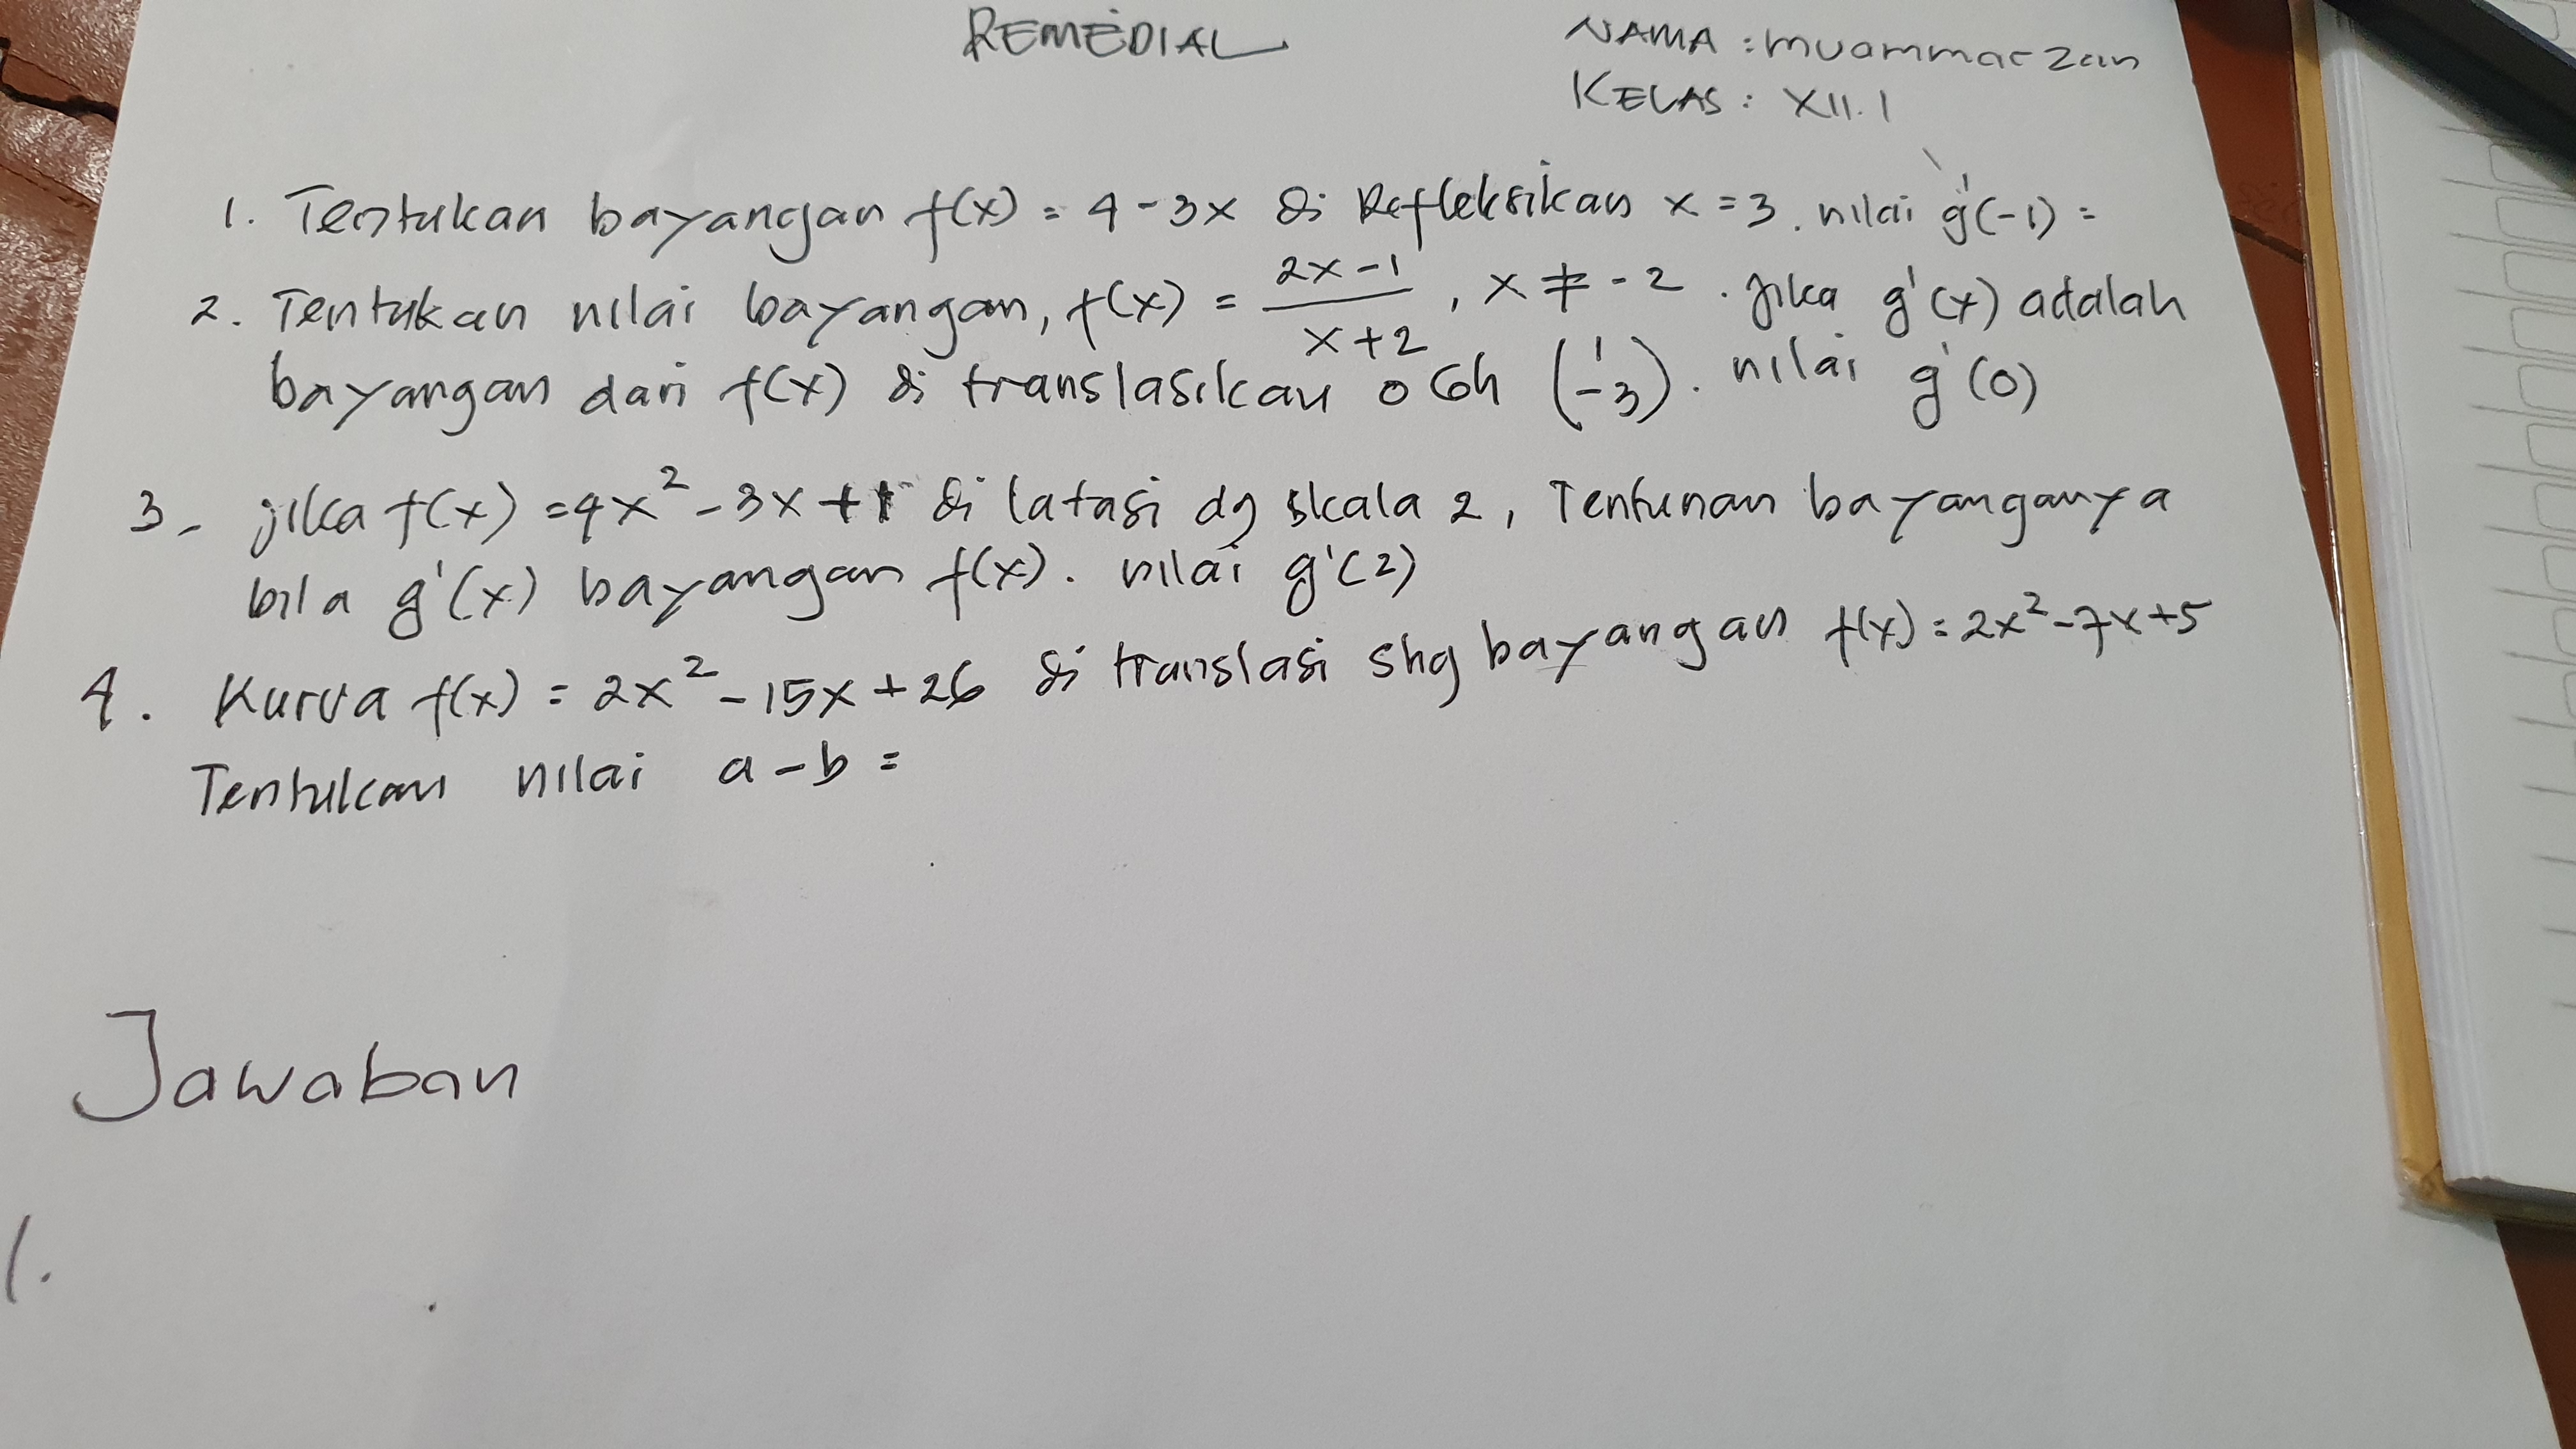 REMEDIAL
NAMA : muammar zan
KELAS : XII.1
1. Tentukan bayangan f(x) = 4 - 3x di Refleksikan x = 3. nilai g'(-1) =
2. Tentukan nilai bayangan, f(x) = (2x - 1)/(x + 2), x ≠ -2. Jika g'(x) adalah
bayangan dari f(x) di translasikan oleh (1 -3). nilai g'(0)
3. jika f(x) = 4x² - 3x + 1 di latasi dg skala 2, Tentunan bayanganya
bila g'(x) bayangan f(x). nilai g'(2)
4. Kurva f(x) = 2x² - 15x + 26 di translasi shg bayangan f(x) = 2x² - 7x + 5
Tentukan nilai a - b =
Jawaban
1.